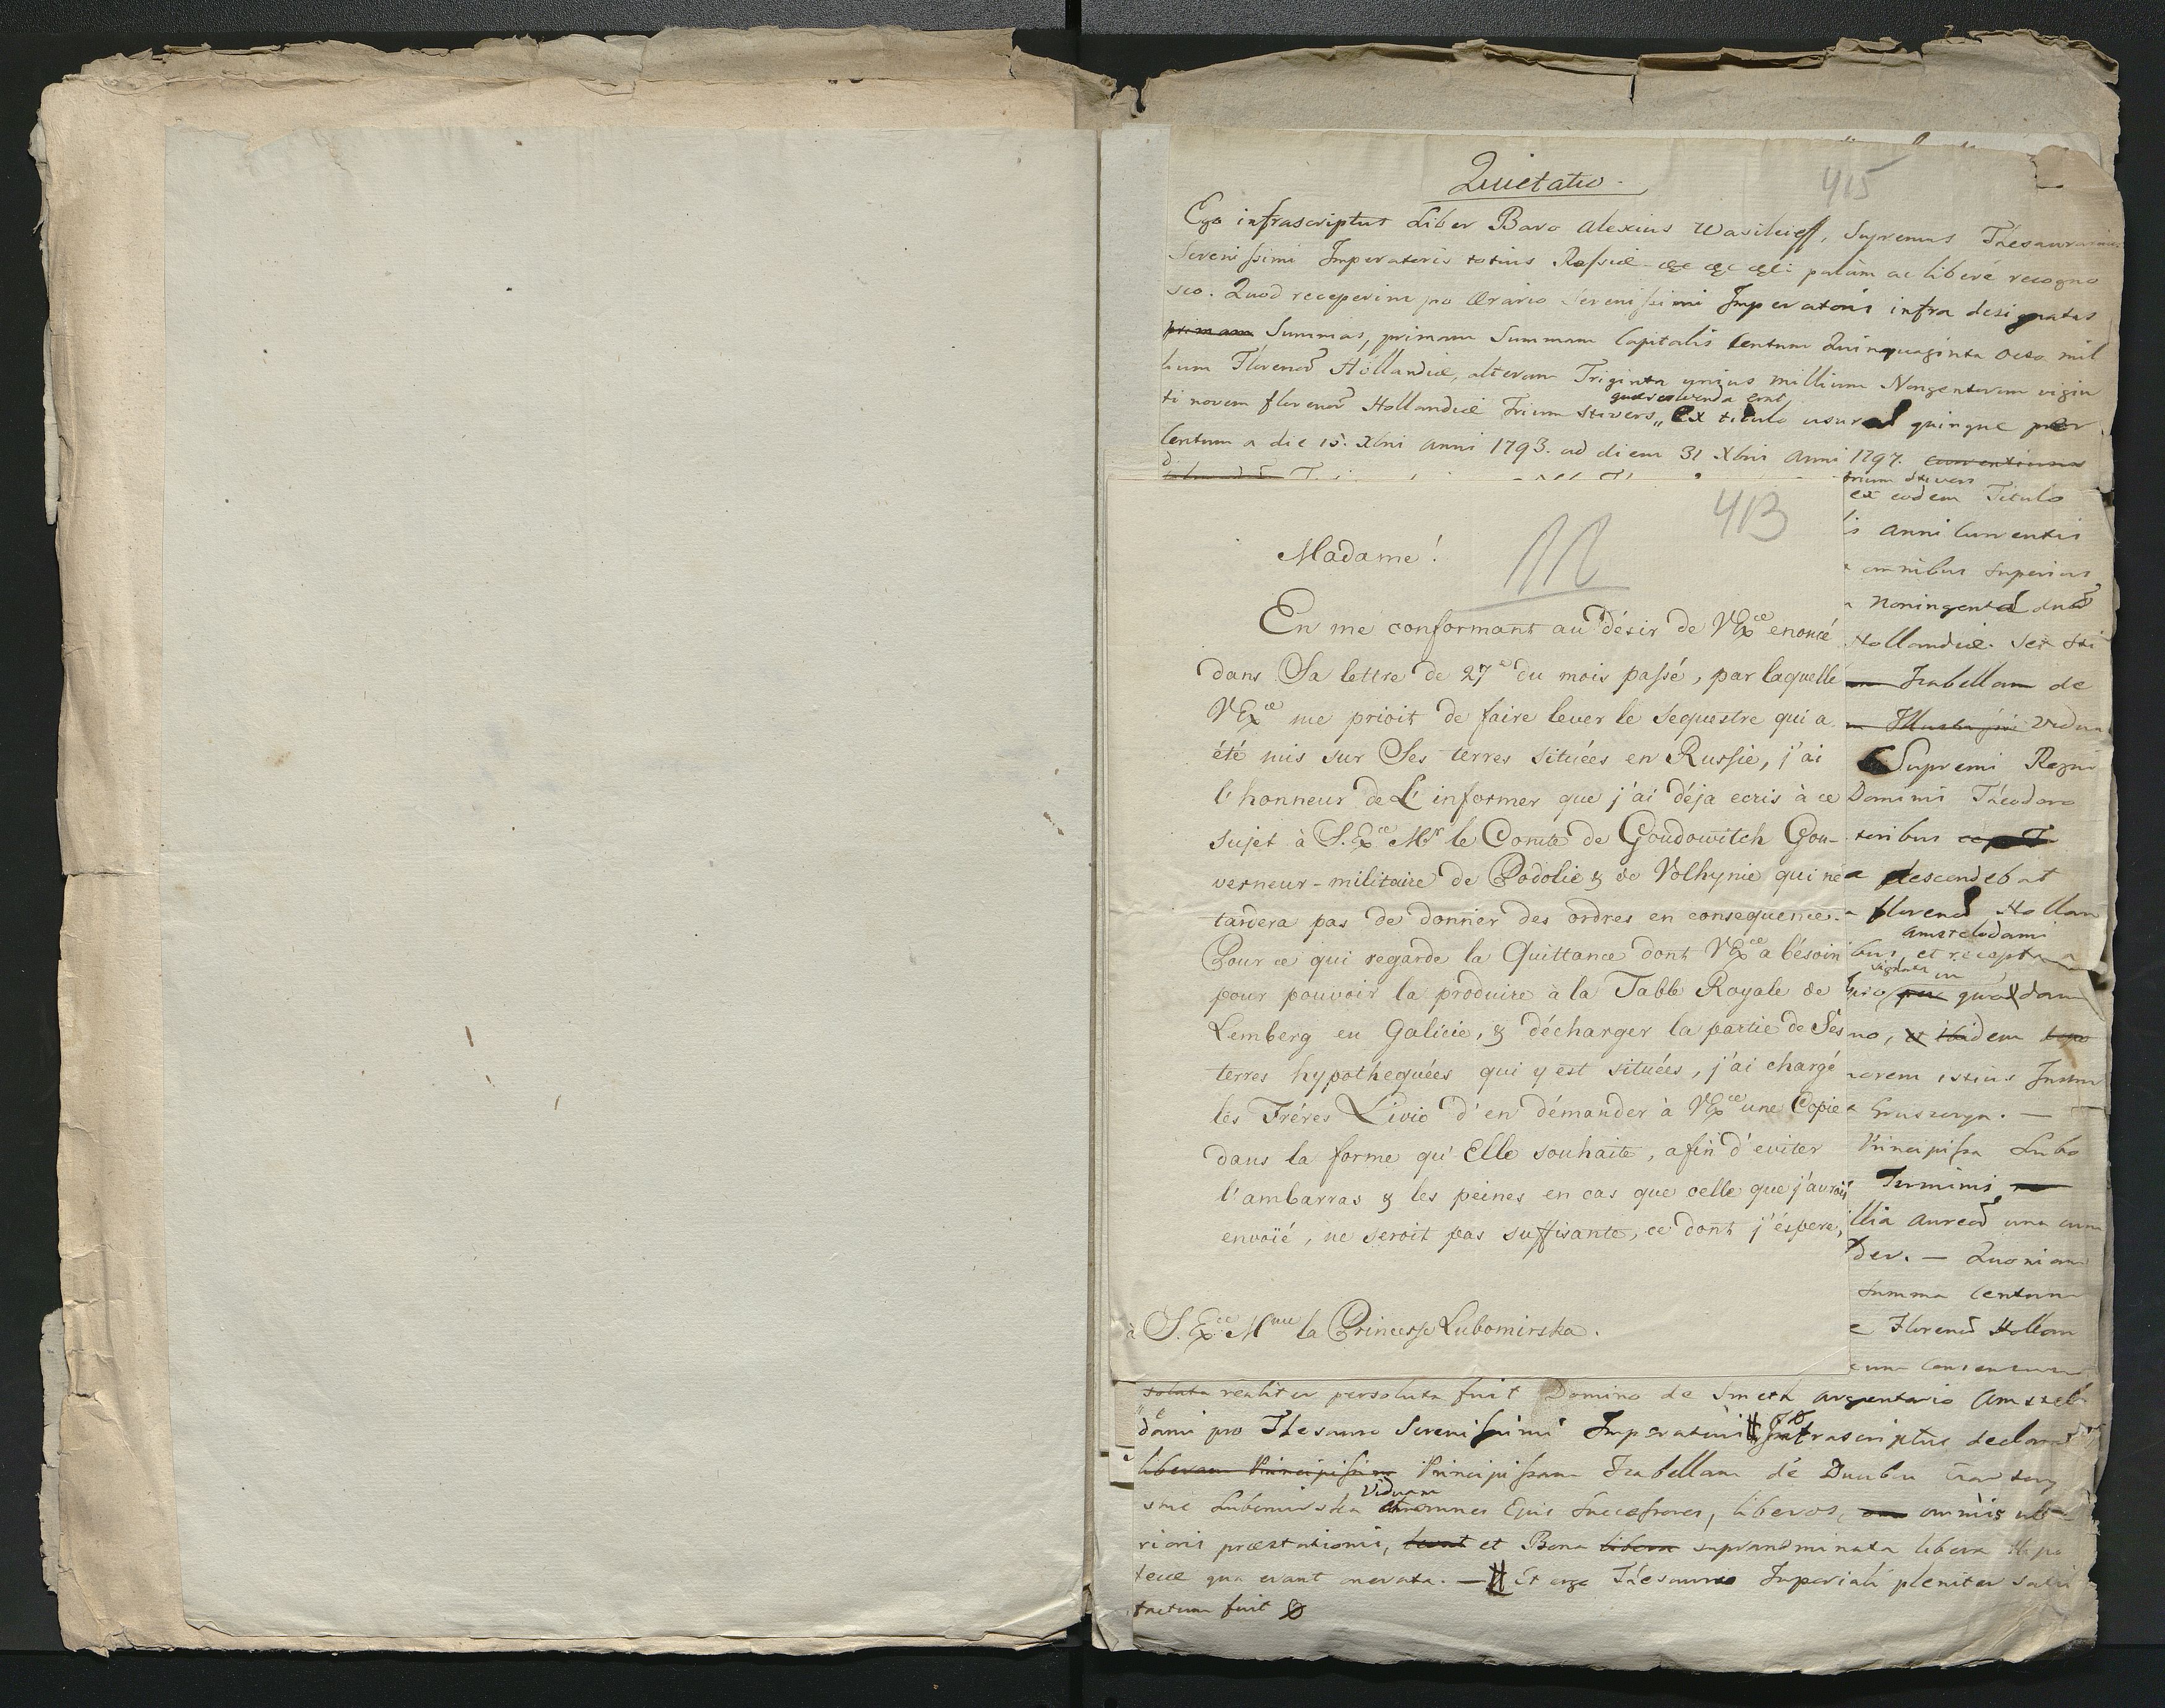 Quietatio.
415
Ego infrascriptus Liber Baro Alexius Wasilieff, Supremus Thesaurarius
Serenissimi Imperatoris totius Rossiæ &c &c &c: palàm ac liberé recogno
sco. Quod receperim pro Ærario Serenissimi Imperatoris infra designatas
primam Summas, primam Summam Capitalis Centum Quinquaginta Octo mil
lium Florenor Hollandiæ, alteram Triginta unius millium Nongentorum vigin
ti novem florenor Hollandiæ Trium Stivers,, ex titulo usurar quinque per
Centum a die 15. Xbris anni 1793. ad diem 31 Xbris Anni 1797.
413
Madame!
En me conformant au désir de VExce enoncé
dans Sa lettre de 27e du mois passé, par laquelle
VExce me prioit de faire lever le sequestre qui a
été mis sur Ses terres situées en Russie, j'ai
l'honneur de L'informer que j'ai déja ecris à ce
sujet à S. Exce Mr le Comte de Goudowitch Gou-
verneur-militaire de Podolie & de Volhynie qui ne
tardera pas de donner des ordres en consequence.
Pour ce qui regarde la Quittance dont VExce a bésoin
pour pouvoir la produire à la Table Royale de
Lemberg en Galicie, & décharger la partie de Ses
terres hypothequées qui y est situées, j'ai chargé
les Fréres Livio d'en démander à VExce une Copie
dans la forme qu'Elle souhaite, afin d'eviter
l'ambarras & les peines en cas que celle que j'aurois
envoïé, ne seroit pas suffisante, ce dont j'éspere,
à S. Exce Mme la Princesse Lubomirska.
trium stivers
ex eodem Titulo
is anni currentis
omnibus superius
Noningentor duor
Hollandiæ. Sex sti
Isabellam de
Vidua
Supremi Regni
Domini Théodoro
teribus
a descendebat
florenor Hollan
Amstelodami
bus, et recepta a
signata in
no, et ibidem
Principissa Lubo
Termini
llia aureor una cum
der. — Quoniam
Summa Centum
e Florenor Hollan
soluta realiter persoluta fuit Domino de Smeth argentario Amstelo
dami pro Thesauro Serenissimi Imperatoris infrascriptus declaro
liberam Principissam Principissam Isabellam de Ducibus Czartory
Viduam
skie Lubomirska omnes Ejus Successores, liberos, omnis ulte
rioris præstationis, et Bona libera supranominata libera Hipo
tecæ qua erant onerata. — Et ergo Thesauro Imperiali pleniter satis
factum fuit